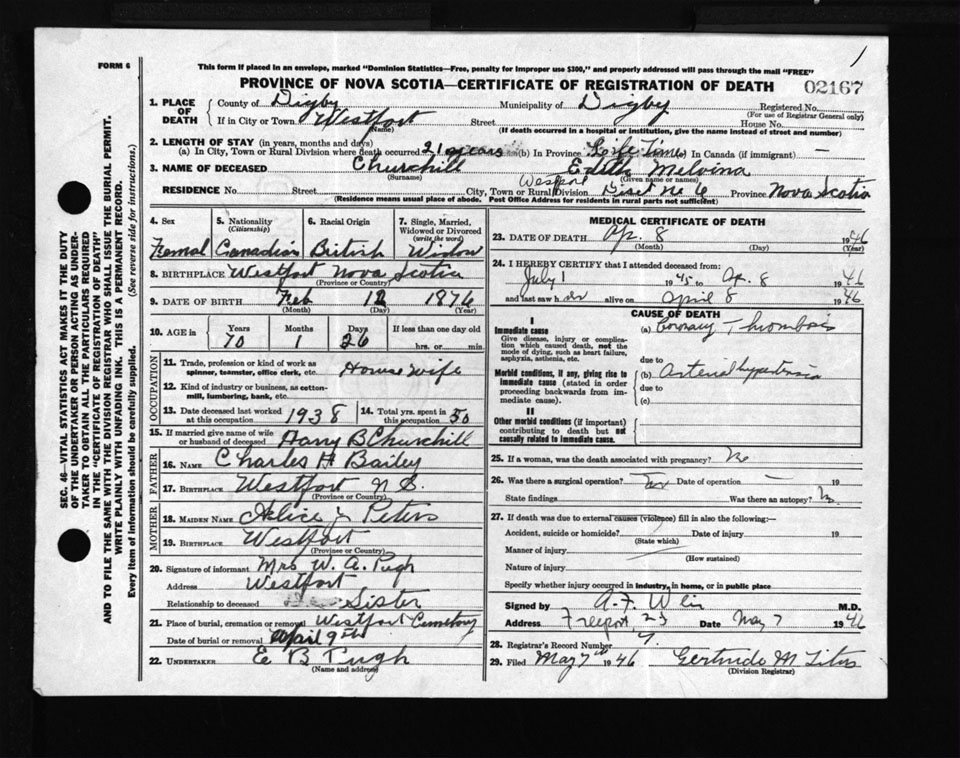 1
FORM 6
This form if placed in an envelope, marked "Dominion Statistics—Free, penalty for improper use $300," and properly addressed will pass through the mail "FREE"
PROVINCE OF NOVA SCOTIA—CERTIFICATE OF REGISTRATION OF DEATH 02167
1. PLACE OF DEATH County of Digby Municipality of Digby Registered No.
(For use of Registrar General only)
If in City or Town Westport Street House No.
(Name) (If death occurred in a hospital or institution, give the name instead of street and number)
2. LENGTH OF STAY (in years, months and days)
(a) In City, Town or Rural Division where death occurred 21 years (b) In Province Life Time (c) In Canada (if immigrant) —
3. NAME OF DECEASED Churchill Edith Melvina
(Surname) (Given name or names)
RESIDENCE No. Street City, Town or Rural Division Westport Dist No 6 Province Nova Scotia
(Residence means usual place of abode. Post Office Address for residents in rural parts not sufficient)
4. Sex 5. Nationality (Citizenship) 6. Racial Origin 7. Single, Married, Widowed or Divorced (write the word)
Femal Canadian British Widow
8. BIRTHPLACE Westport Nova Scotia
(Province or Country)
9. DATE OF BIRTH Feb 12 1876
(Month) (Day) (Year)
10. AGE in Years Months Days If less than one day old
70 1 26 hrs. or min.
OCCUPATION
11. Trade, profession or kind of work as spinner, teamster, office clerk, etc. House wife
12. Kind of industry or business, as cotton-mill, lumbering, bank, etc.
13. Date deceased last worked at this occupation 1938 14. Total yrs. spent in this occupation 50
15. If married give name of wife or husband of deceased Harry B Churchill
FATHER
16. NAME Charles H Bailey
17. BIRTHPLACE Westport N S.
(Province or Country)
MOTHER
18. MAIDEN NAME Alice J Peters
19. BIRTHPLACE Westport
(Province or Country)
20. Signature of informant Mrs W. A. Pugh
Address Westport
Relationship to deceased Sister
21. Place of burial, cremation or removal Westport Cemetery
Date of burial or removal April 9th
22. UNDERTAKER E B Pugh
(Name and address)
MEDICAL CERTIFICATE OF DEATH
23. DATE OF DEATH Ap. 8 1946
(Month) (Day) (Year)
24. I HEREBY CERTIFY that I attended deceased from:
July 1 1945 to Ap. 8 1946
and last saw her alive on April 8 1946
CAUSE OF DEATH
I
Immediate cause (a) Coronary Thrombosis
Give disease, injury or complication which caused death, not the mode of dying, such as heart failure, asphyxia, asthenia, etc.
due to
Morbid conditions, if any, giving rise to immediate cause (stated in order proceeding backwards from immediate cause). (b) Arterial hypertension
due to
(c)
II
Other morbid conditions (if important) contributing to death but not causally related to immediate cause.
25. If a woman, was the death associated with pregnancy? No
26. Was there a surgical operation? Date of operation — 19
State findings Was there an autopsy? No
27. If death was due to external causes (violence) fill in also the following:—
Accident, suicide or homicide? Date of injury 19
(State which)
Manner of injury
(How sustained)
Nature of injury
Specify whether injury occurred in industry, in home, or in public place
Signed by A. F. Weir M.D.
Address Freeport, NS Date May 7 1946
28. Registrar's Record Number 7.
29. Filed May 7th 1946 Gertrude M Titus
(Division Registrar)
SEC. 46—VITAL STATISTICS ACT MAKES IT THE DUTY
OF THE UNDERTAKER OR PERSON ACTING AS UNDER-
TAKER TO OBTAIN ALL THE PARTICULARS REQUIRED
IN THE "CERTIFICATE OF REGISTRATION OF DEATH"
AND TO FILE THE SAME WITH THE DIVISION REGISTRAR WHO SHALL ISSUE THE BURIAL PERMIT.
WRITE PLAINLY WITH UNFADING INK. THIS IS A PERMANENT RECORD.
Every item of information should be carefully supplied. (See reverse side for instructions.)